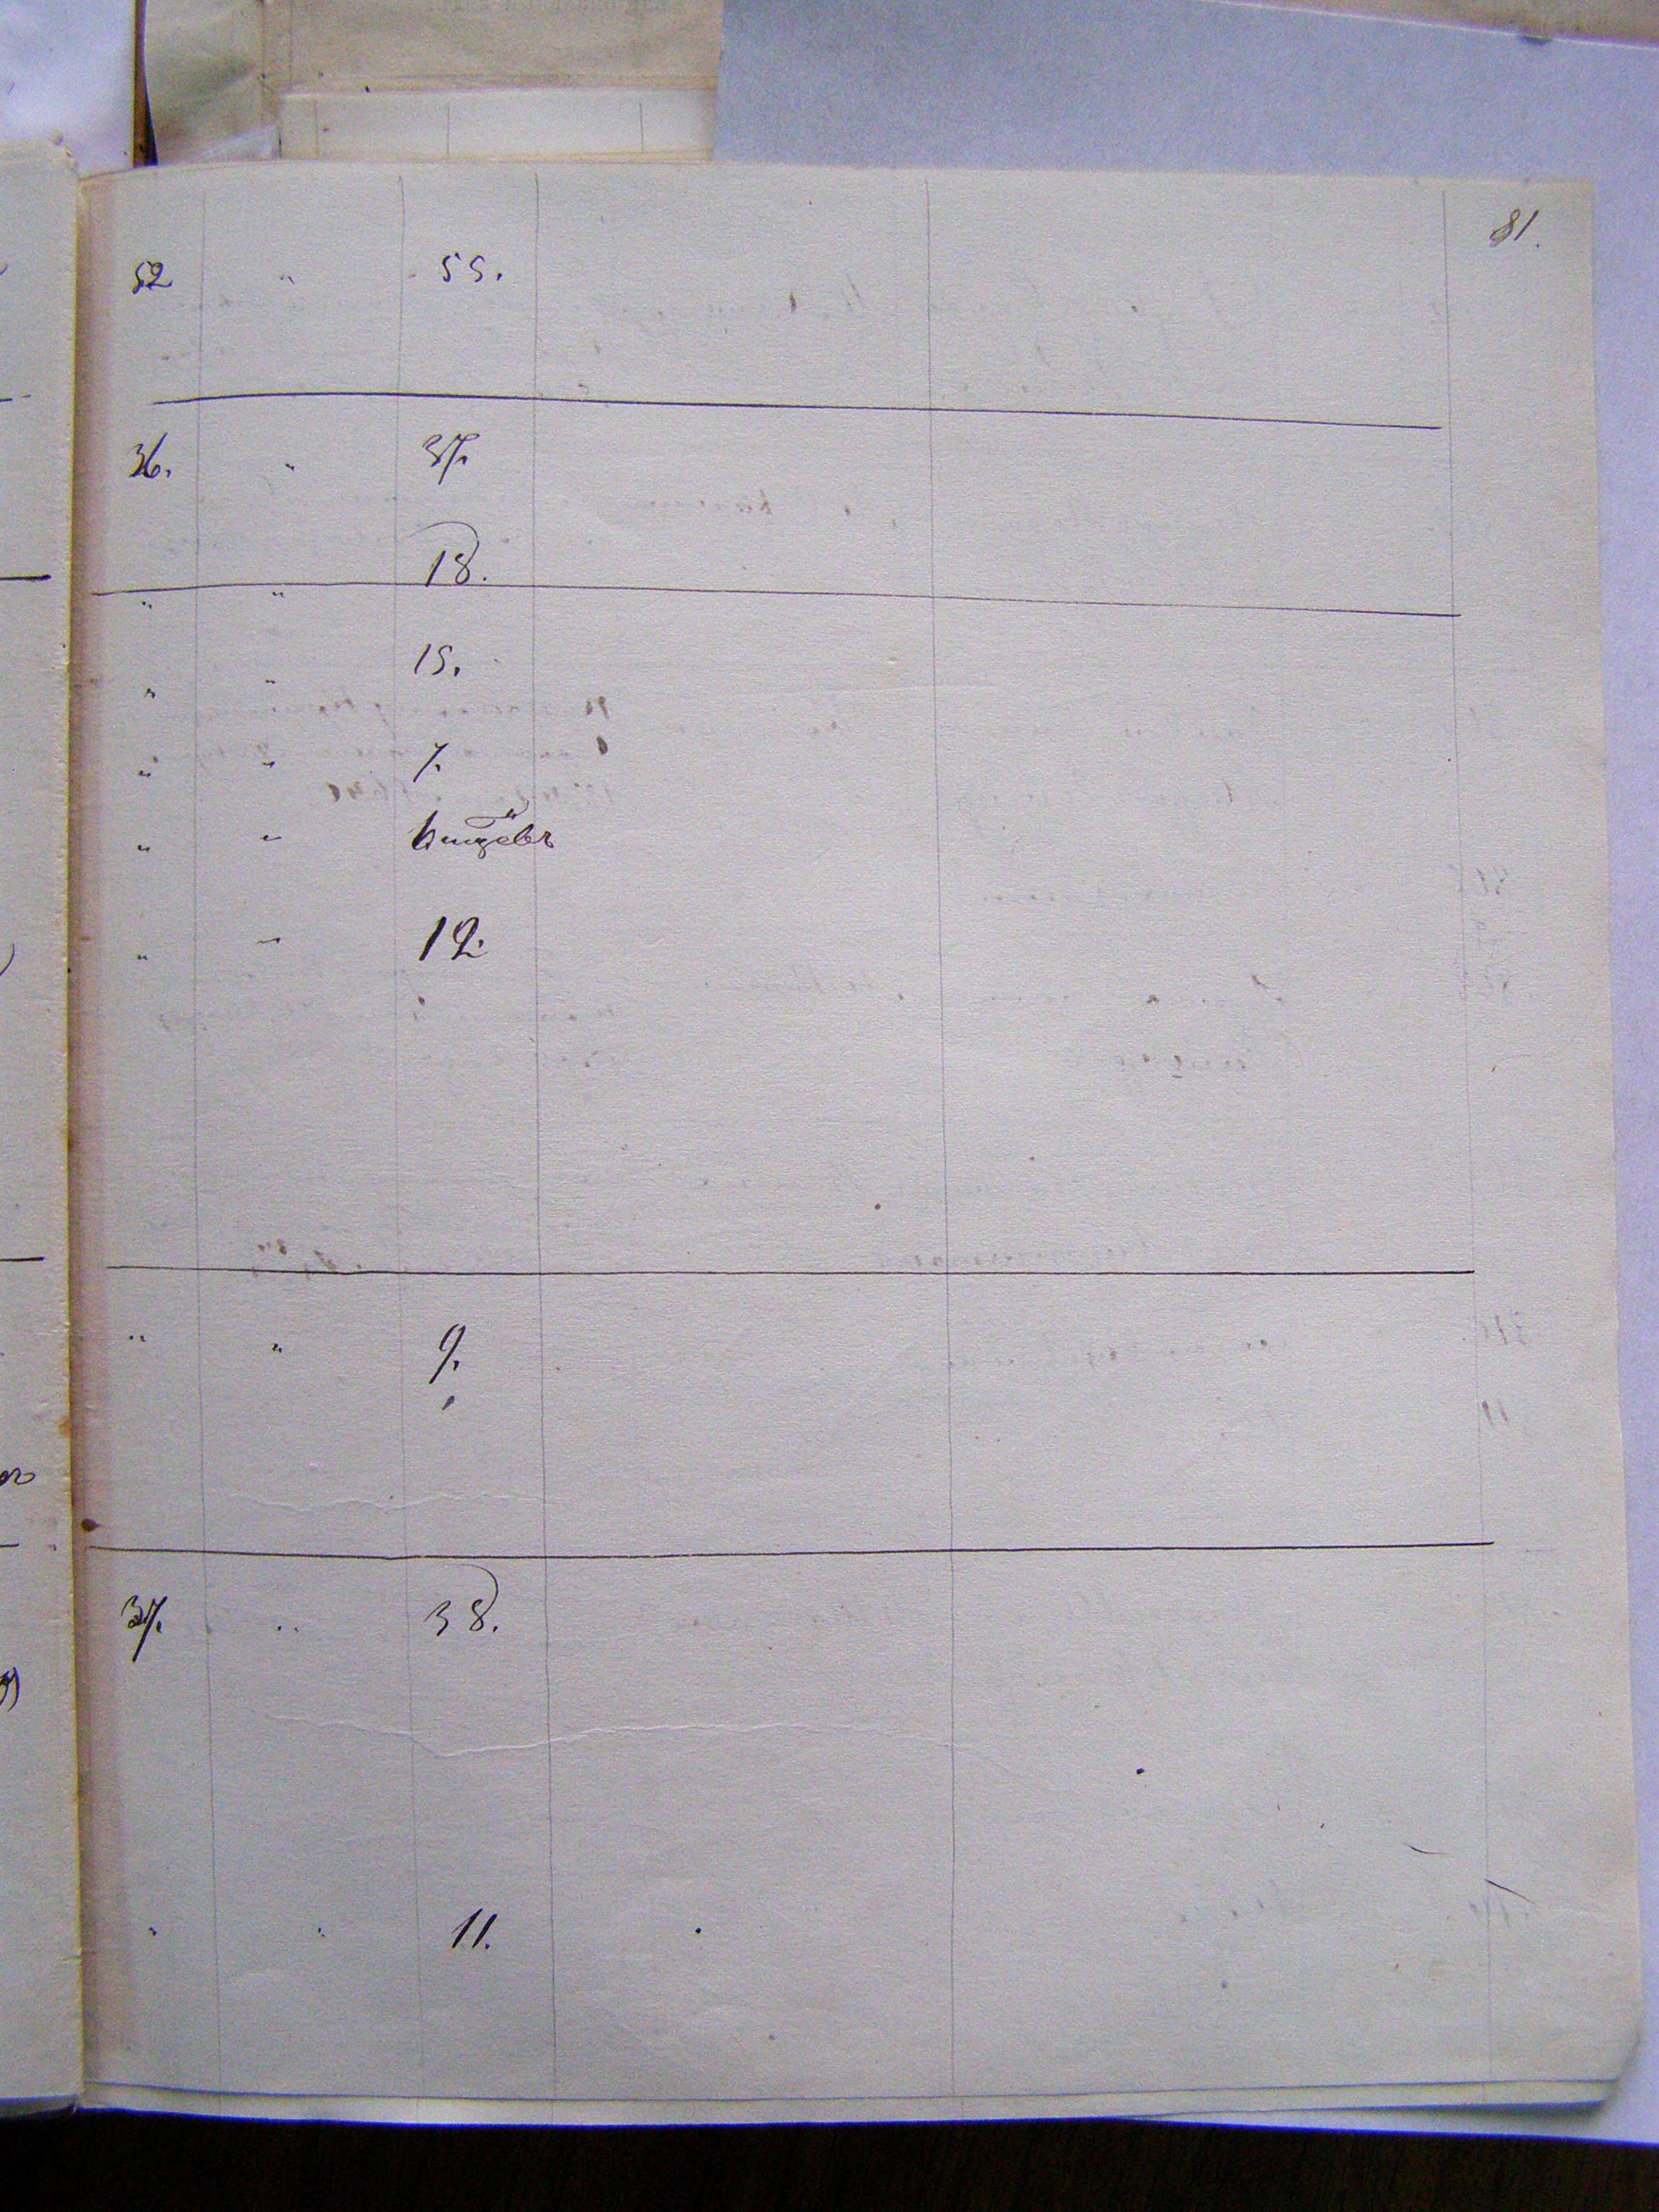 81.
52 " 55.
36. " 37.
18.
" "
15.
" "
" " 7.
" "
" " 12.
" " 9.
37. " 38.
" " 11.